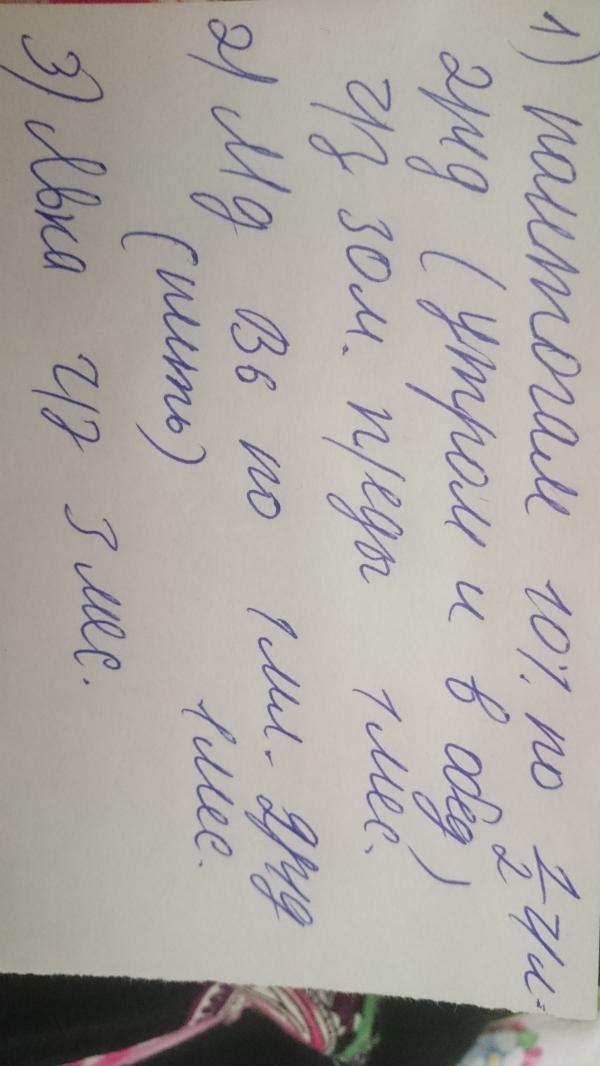 1) пантогам 10% по 1/2 ч.л.
2р/д (утром и в обед)
ч/з 30м. п/еды 1 мес.
2) Мg В6 по 1 мл. 2р/д
(пить) 1 мес.
3) Явка ч/з 3 мес.